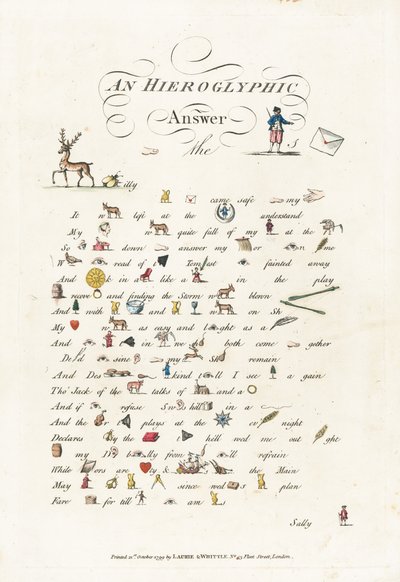 AN HIEROGLYPHIC
Answer
the s
illy
came safe my
It w left at the understand
My w quite full of my at the
So down answer my or n me
W read of t Tem st fainted away
And k in a like a in the play
recover and finding the Storm w blown
And with and w on Sh
My w as easy and l ght as a
And in we both come gether
De d sine my Sh remain
And Des kind t ll I see a gain
Tho' Jack of the talks of and a
And if refuse S hill in a
And the r plays at the ev night
Declares by the t hell wed me out ght
my ly from ll refrain
While ors are cy & the Main
May since wed s plan
Fare for till am
Sally
Printed 21st October 1799 by LAURIE & WHITTLE, No. 53, Fleet Street, London.